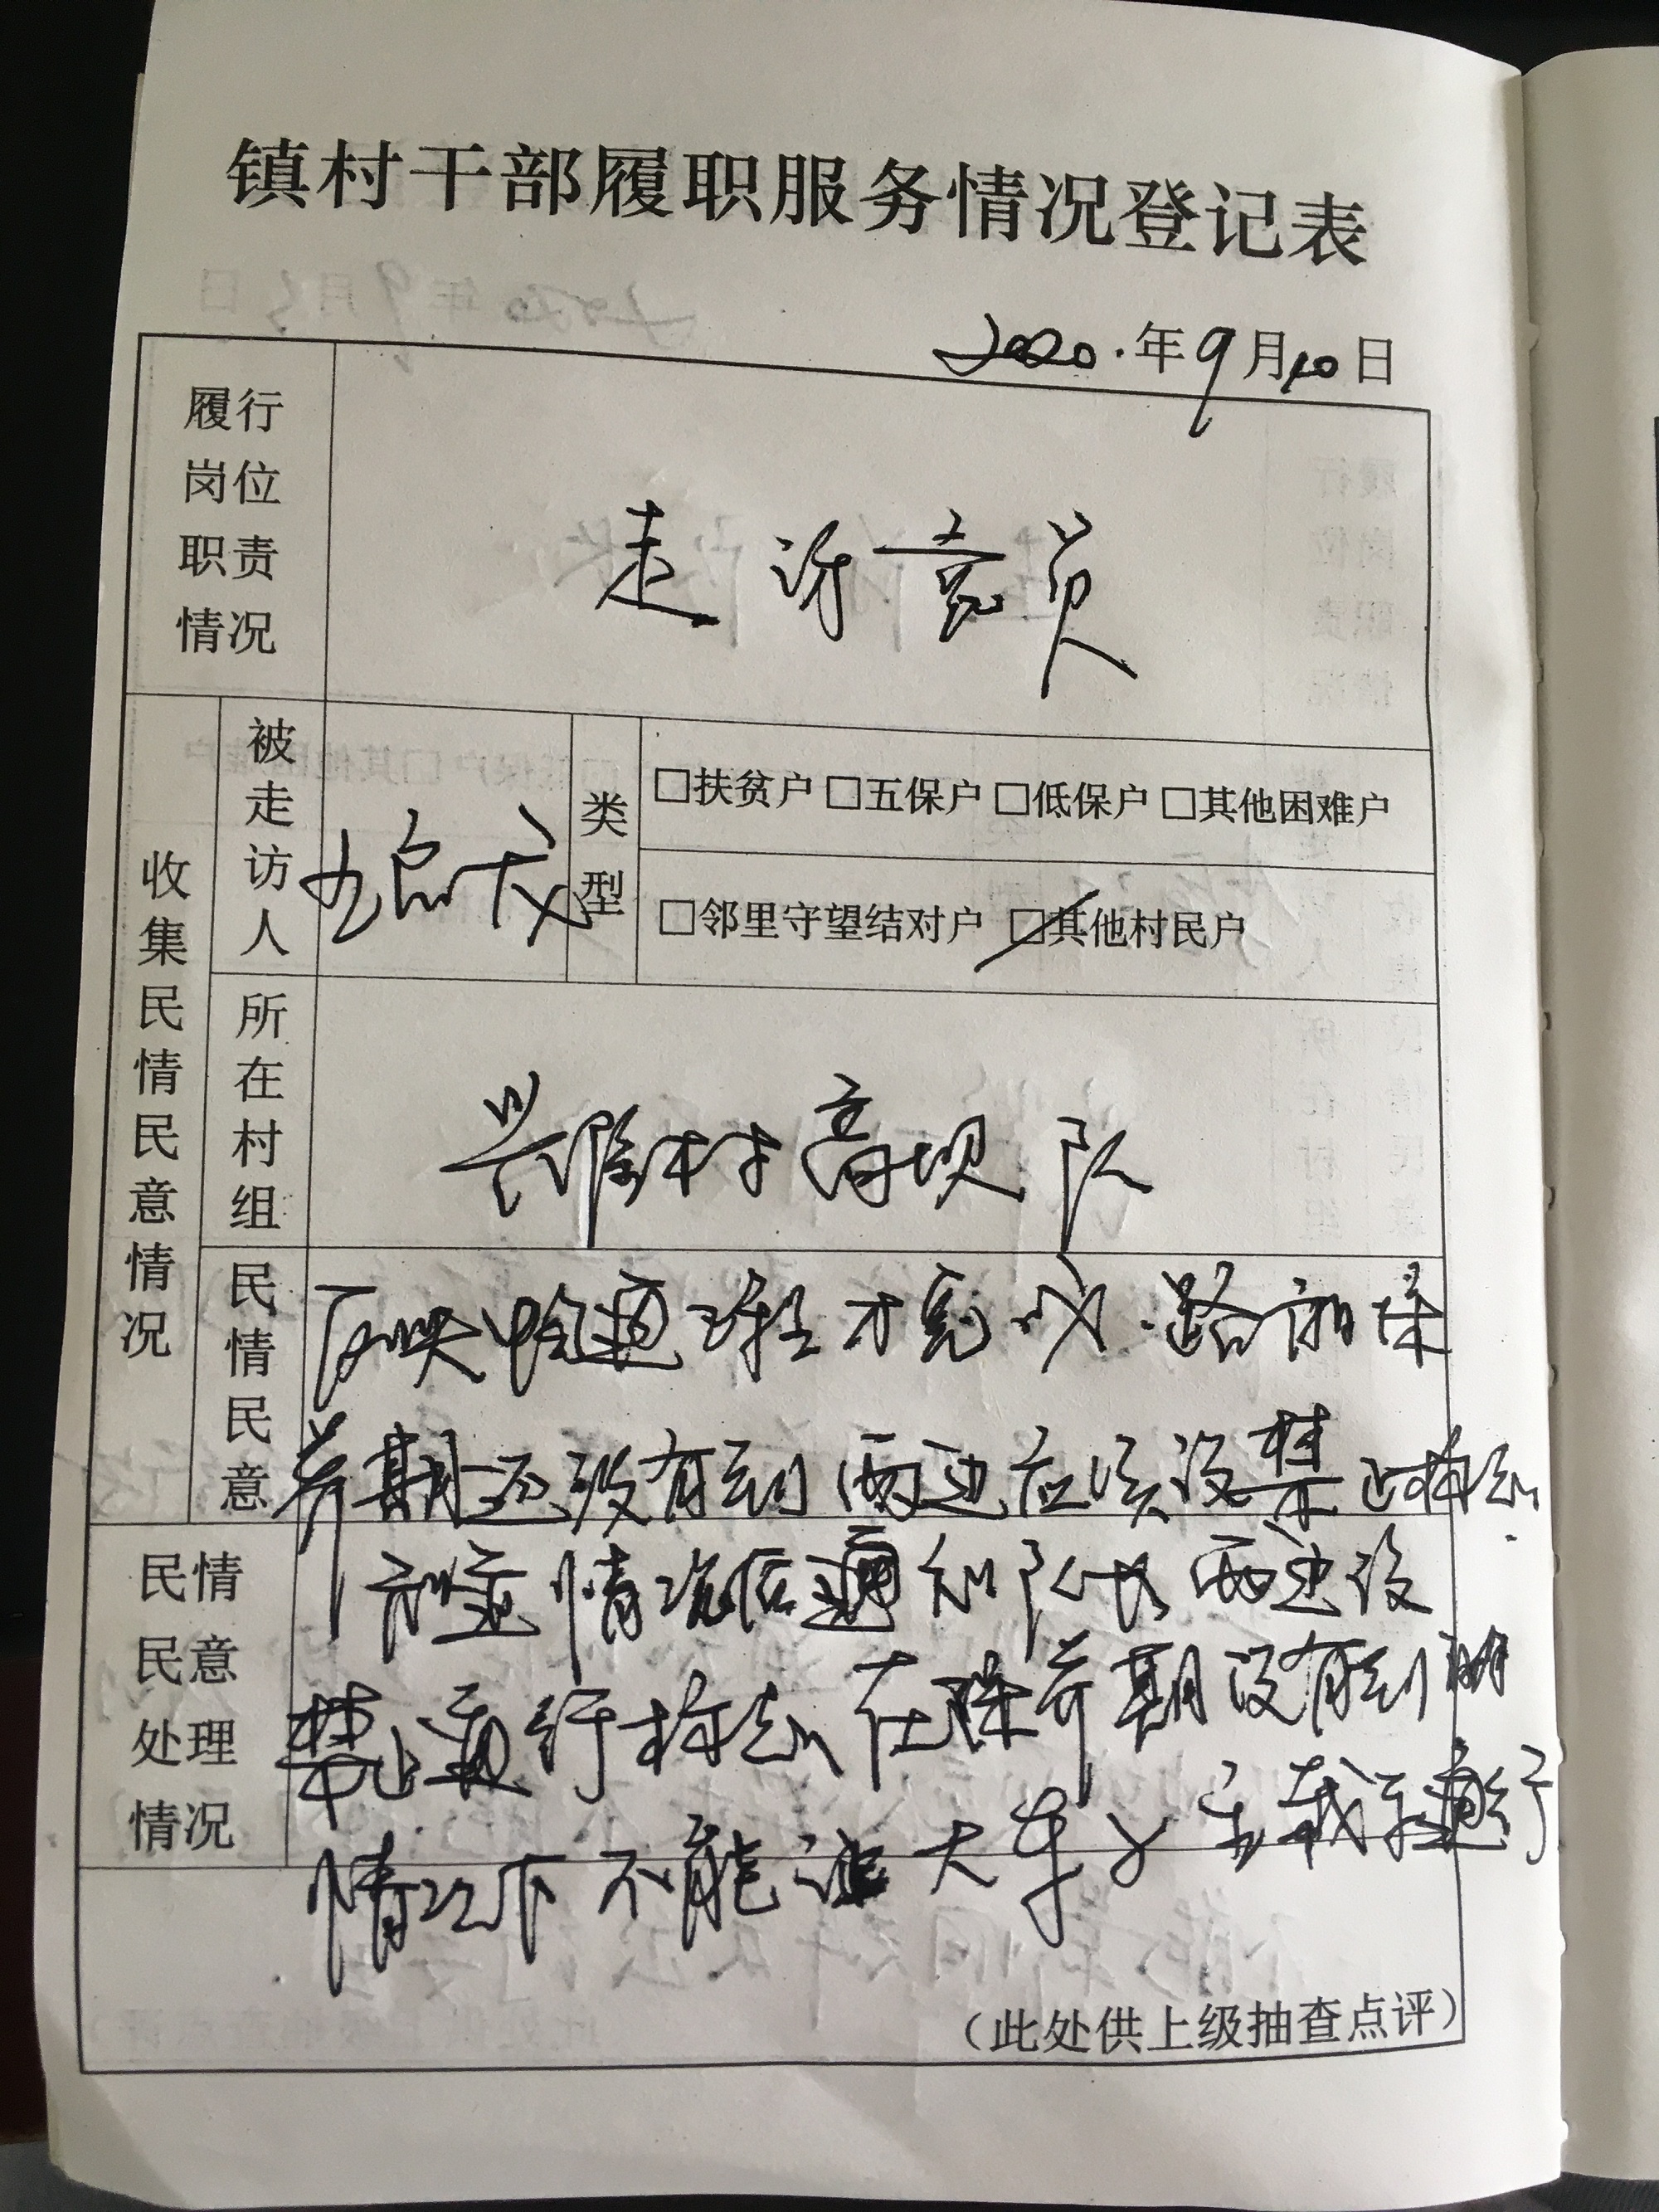 镇村干部履职服务情况登记表
2020.年9月10日
履行岗位职责情况
走访党员
收集民情民意情况
被走访人
类型
□扶贫户 □五保户 □低保户 □其他困难户
□邻里守望结对户 □其他村民户
所在村组
兴隆村高坝队
民情民意
反映 路 保
养期还没有到两边应该设禁止标志
民情民意处理情况
情况后通知队长两边设
禁止 行标志在保养期没有到的
情况下不能让大车 载 通行
(此处供上级抽查点评)